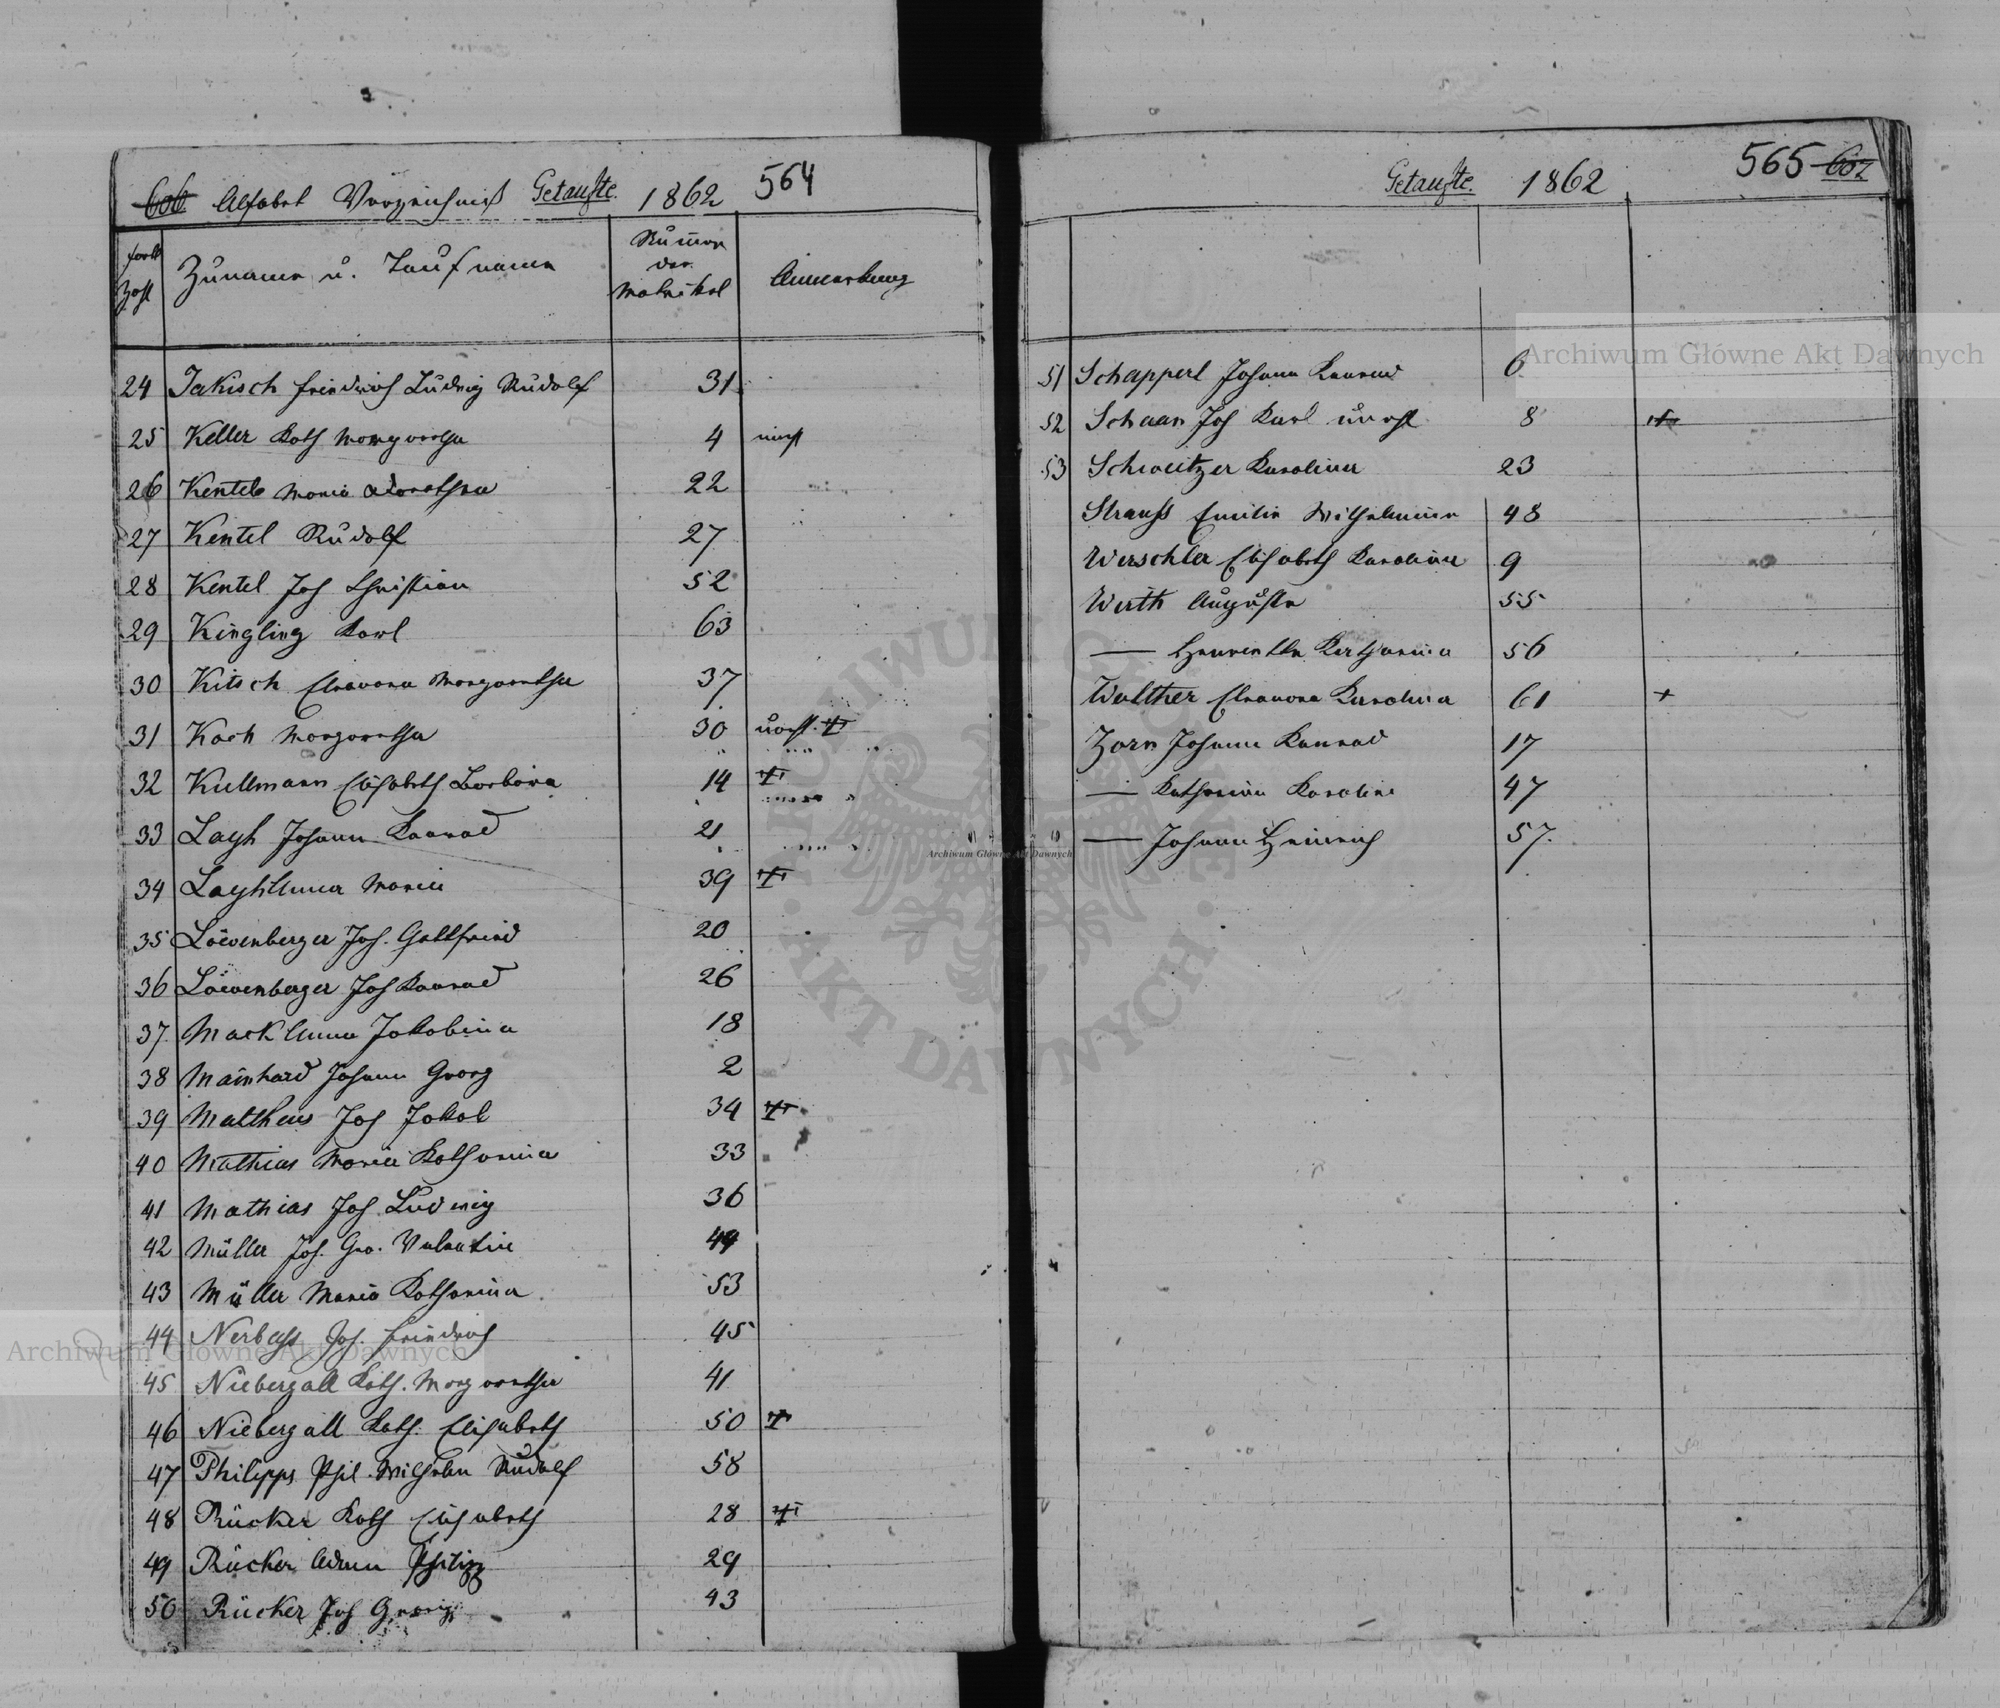 606 Alfabet Verzeichniß Getaufte. 1862 564
fortl Zahl
Zuname u. Taufname
Numer der Matrikel
Anmerkung
24 Jakisch Friedrich Ludwig Rudolf 31
25 Keller Kath Margaretha 4
26 Kentel Maria Dorothea 22
27 Kentel Rudolf 27
28 Kentel Joh Christian 52
29 Kingling Karl 63
30 Kitsch Eleonora Margaretha 37
31 Koch Margaretha 30 unehl. +
32 Kullmann Elisabeth Barbara 14 +
33 Layh Johann Konrad 21
34 Layh Anna Maria 39 +
35 Löwenberger Joh. Gottfried 20
36 Löwenberger Joh Konrad 26
37 Mack Anna Jakobina 18
38 Mainhard Johann Georg 2
39 Mattheus Joh Jakob 34 +
40 Mathias Maria Katharina 33
41 Mathias Joh Ludwig 36
42 Müller Joh. Geo. Valentin 44
43 Müller Maria Katharina 53
44 Nerbass Joh. Friedrich 45
45 Niebergall Kath. Margaretha 41
46 Niebergall Kath. Elisabeth 50 +
47 Philipps Phil. Wilhelm Rudolf 58
48 Rücker Kath Elisabeth 28 +
49 Rücker Adam Philipp 29
50 Rücker Joh Georg 43
Getaufte. 1862 565 607
51 Schapperl Johann Konrad 6
52 Schaan Joh Karl unehl 8 +
53 Schweitzer Karolina 23
Strauß Emilie Wilhelmine 48
Werschler Elisabeth Karoline 9
Wirth Auguste 55
— Henriette Katharina 56
Walther Eleonora Karolina 61 +
Zorn Johann Konrad 17
— Katharina Karoline 47
— Johann Heinrich 57.
Archiwum Główne Akt Dawnych
Archiwum Główne Akt Dawnych
Archiwum Główne Akt Dawnych
ARCHIWUM GŁÓWNE · AKT DAWNYCH ·